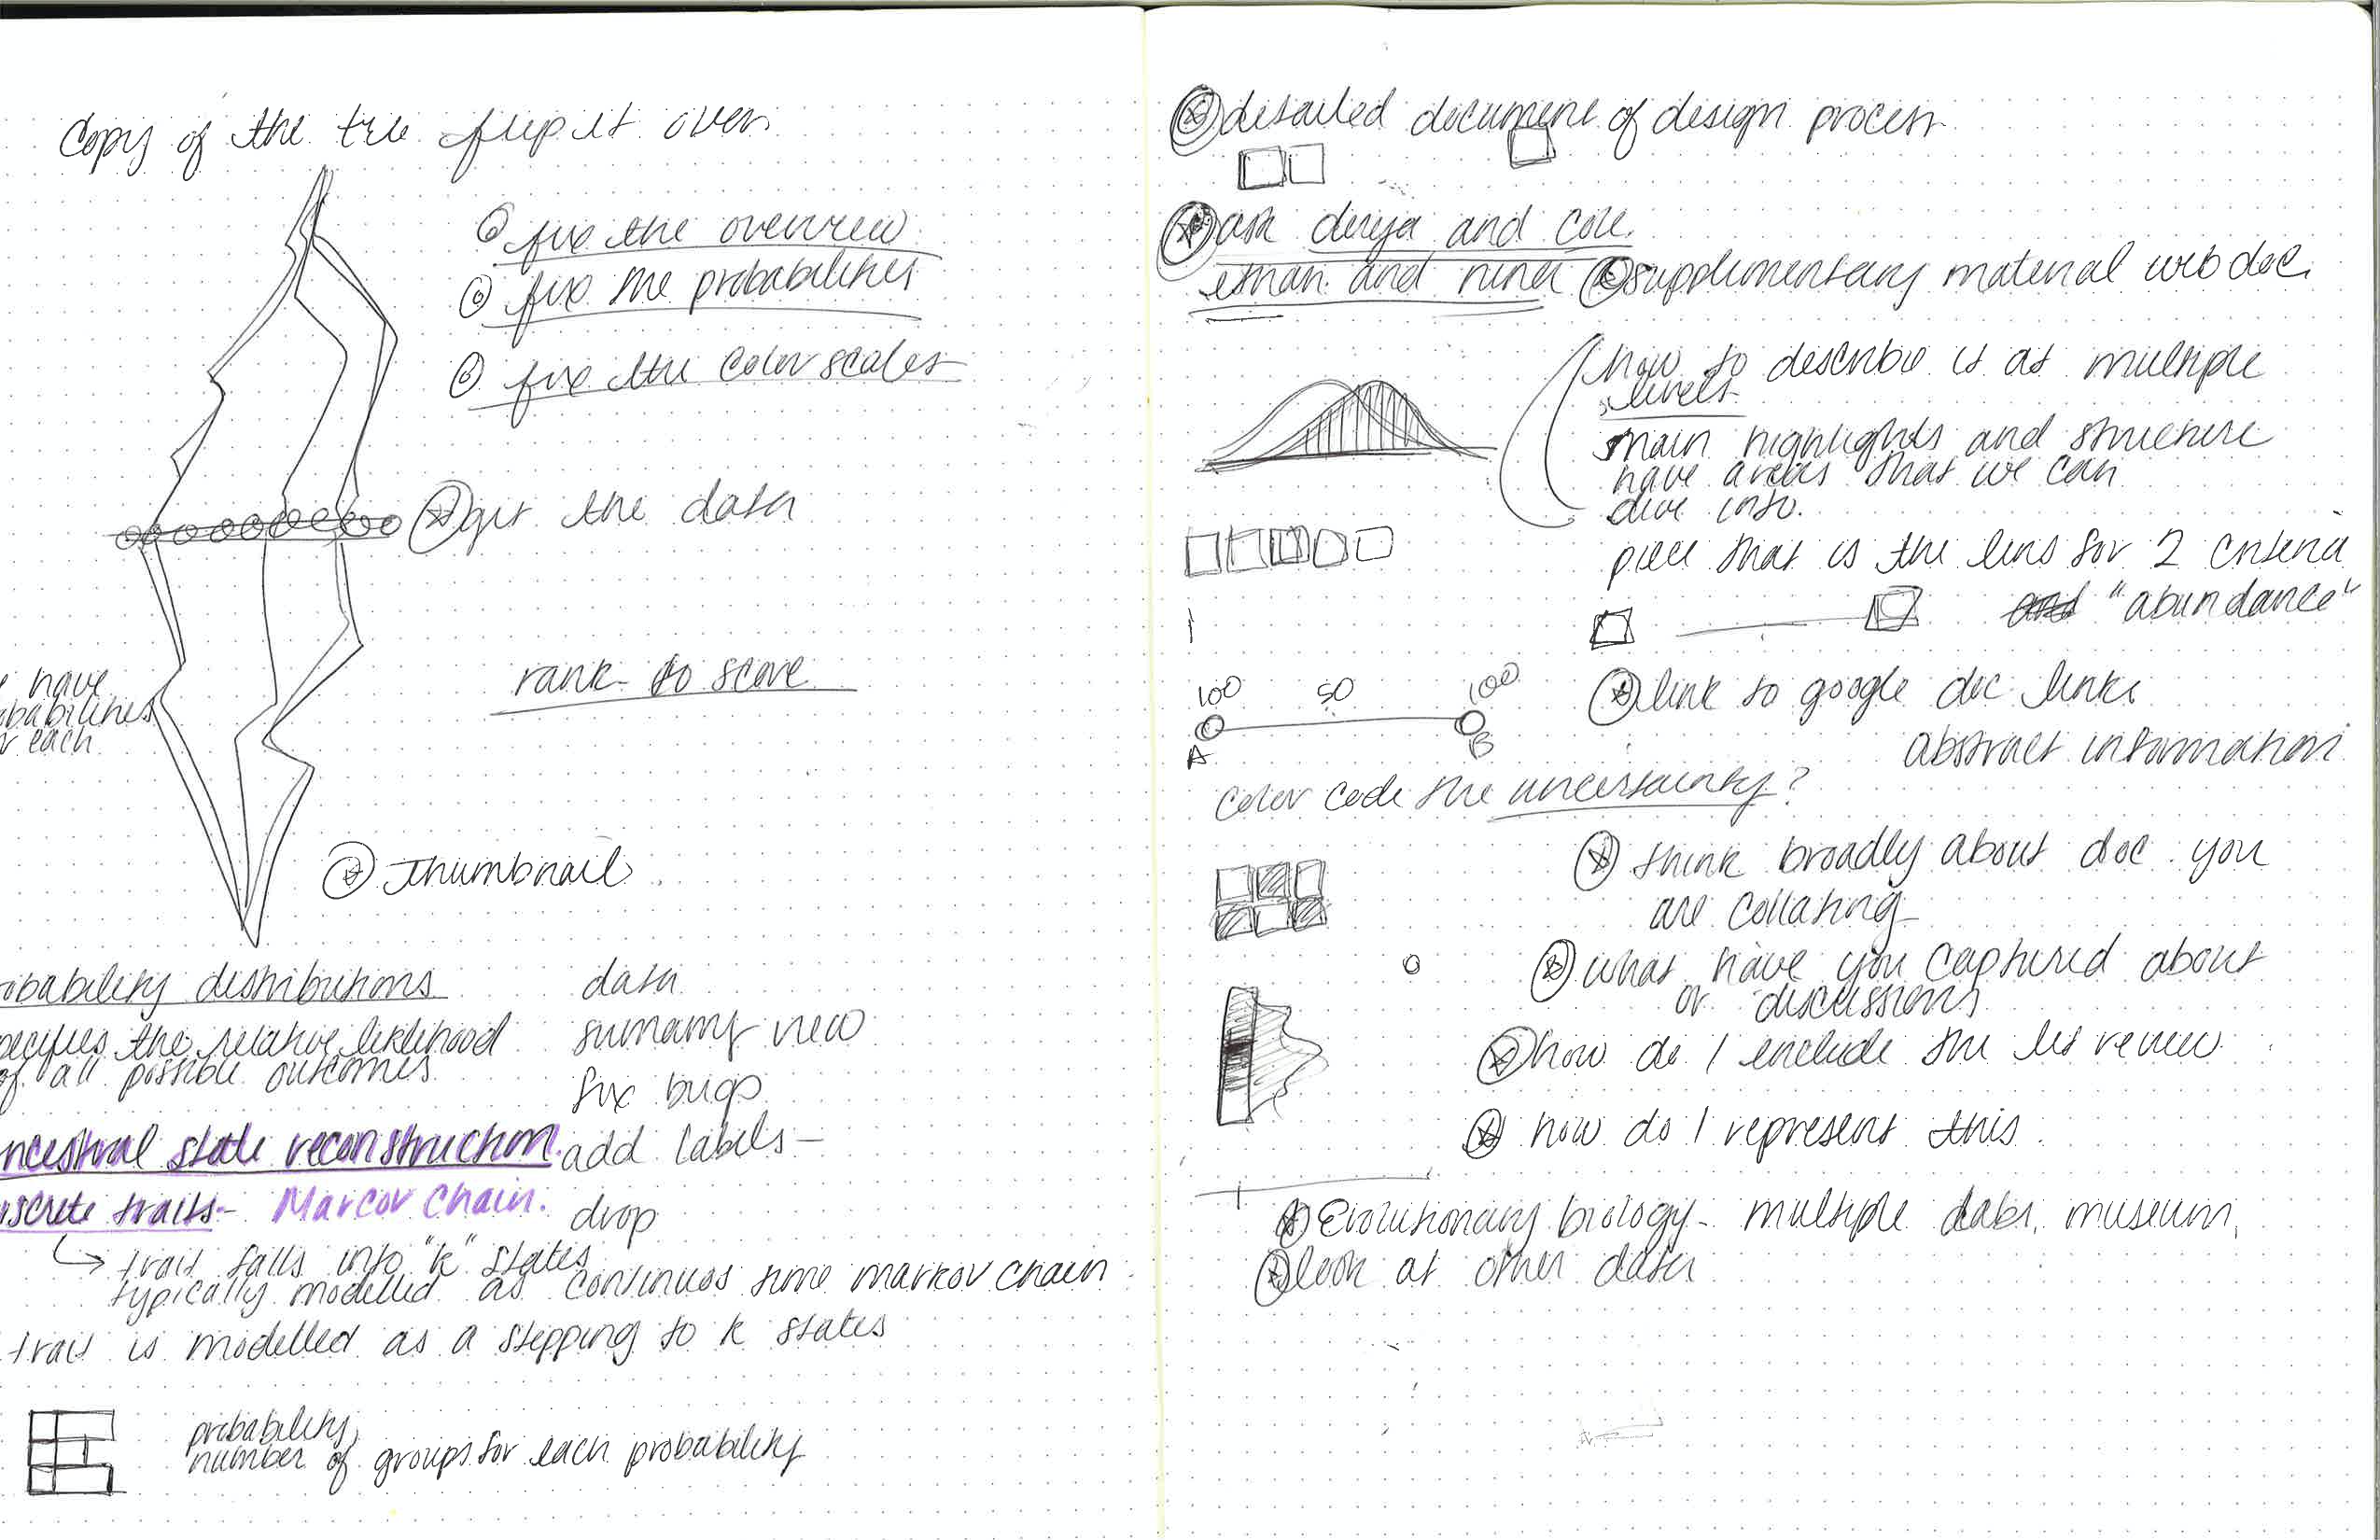 Copy of the tree flip it over
fix the overview
fix the probabilities
fix the color scales
get the data
rank to score
have
each
Thumbnail
distributions
the relative liklihood
of all possible outcomes
state reconstruction
traits- Marcov Chain.
trait falls into "k" states
typically modelled as continuos time markov chain
trait is modelled as a stepping to k states
data
sumamry view
fix bugs
add labels-
drop
probability,
number of groups for each probability
detailed document of design process
ask derya and cole
eman and nina
supplementary material web doc.
how to describe it at multiple
levels
main highlights and structure
have areas that we can
dive into.
piece that is the lens for 2 criteria
and "abundance"
link to google doc links
abstract information
100 50 100
A B
color code the uncertainty?
think broadly about doc you
are collating
what have you captured about
or discussions
how do I include the lit review
how do I represent this.
Evolutionary biology- multiple labs, museum,
look at other data